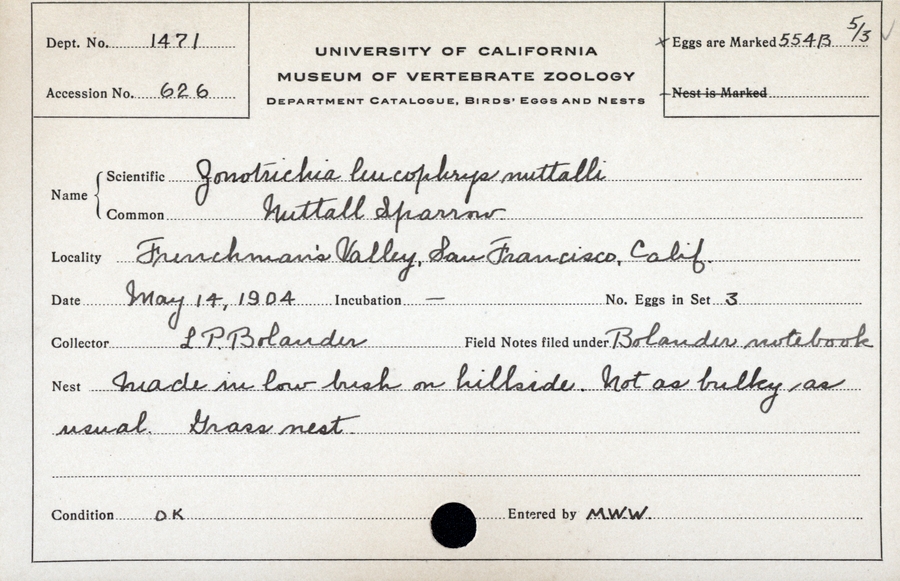 Dept. No. 1471
Accession No. 626
UNIVERSITY OF CALIFORNIA
MUSEUM OF VERTEBRATE ZOOLOGY
DEPARTMENT CATALOGUE, BIRDS' EGGS AND NESTS
x Eggs are Marked 554B 5/3 ✓
Nest is Marked
Name { Scientific Zonotrichia leucophrys nuttalli
Common Nuttall Sparrow
Locality Frenchman's Valley, San Francisco, Calif.
Date May 14, 1904 Incubation — No. Eggs in Set 3
Collector L.P. Bolander Field Notes filed under Bolander notebook
Nest Made in low bush on hillside. Not as bulky as
usual. Grass nest.
Condition OK Entered by M.W.W.